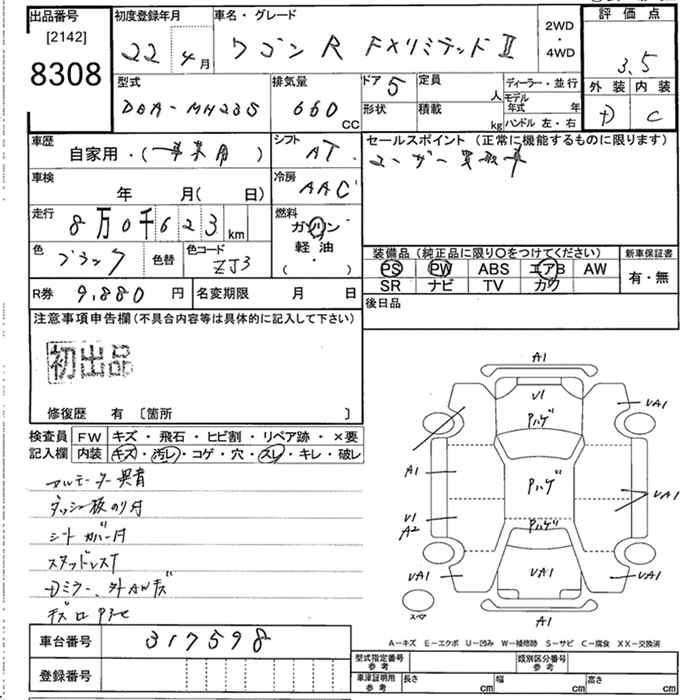 出品番号
[2142]
8308
初度登録年月
22年4月
車名・グレード
ワゴンR FXリミテッドⅡ
2WD
・
4WD
評価点
3.5
外装 内装
D C
型式
DBA-MH23S
排気量
660
CC
ドア 5
形状
定員
人
積載
kg
ディーラー・並行
モデル年式 年
ハンドル 左・右
車歴
自家用・(事業用)
シフト
AT
セールスポイント(正常に機能するものに限ります)
ユーザー買取車
車検
年 月(日)
冷房
AAC
走行
8万0千623km
燃料
ガソリン
軽油
(・)
色
ブラック
色替
色コード
ZJ3
装備品(純品に限り〇をつけてください)
PS PW ABS エアB AW
SR ナビ TV カワ
新車保証書
有・無
R券 9,880円
名変期限 月 日
後日品
注意事項申告欄(不具合内容等は具体的に記入して下さい)
初出品
修復歴 有 [箇所 ]
検査員 FW キズ・飛石・ヒビ割・リペア跡・×要
記入欄 内装 キズ・汚レ・コゲ・穴・スレ・キレ・破レ
ダッシュ板のり付
シートカバー付
スタッドレスT
Dミラー、外AWキズ
A1
V1
Pハゲ
VA1
A1
Pハゲ
VA1
V1
A2
Pハゲ
VA1
VA1
VA1
A1
スペア
A-キズ E-エクボ U-凹み W-補修跡 S-サビ C-腐食 XX-交換済
車台番号 317598
登録番号
型式指定番号
参考
類別区分番号
参考
車庫証明用
参考
長さ cm 幅 cm 高さ cm